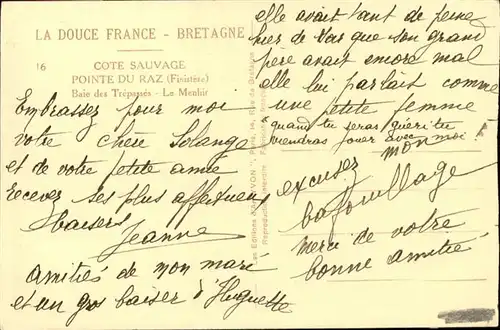 LA DOUCE FRANCE - BRETAGNE
16
COTE SAUVAGE
POINTE DU RAZ (Finistère)
Baie des Trépassés - Le Menhir
Embrassez pour moi
votre chère Solange
et de votre petite amie
recevez ses plus affectueux
Baisers
Jeanne
Amitiés de mon mari
et un gros baiser d'Huguette
elle avait tant de peine
hier de voir que son grand
père avait encore mal
elle lui parlait comme
une petite femme
quand tu seras guéri tu
viendras jouer avec moi !
MON
excusez
bafouillage
merci de votre
bonne amitié